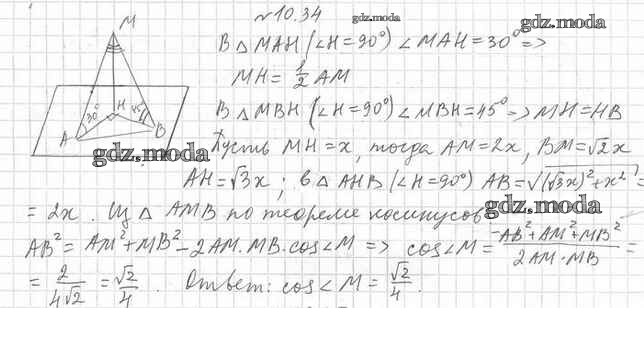 №10.34
gdz.moda
gdz.moda
M
30°
45°
H
A
B
В △ MAH (∠H=90°) ∠MAH=30° =>
MH= 1/2 AM
В △ MBH (∠H=90°) ∠MBH=45° => MH=HB
gdz.moda
Пусть MH=x, тогда AM=2x, BM=√2x
AH=√3x; в △ AHB (∠H=90°) AB=√((√3x)²+x²) =
gdz.moda
= 2x. Из △ AMB по теореме косинусов
AB²= AM²+MB²-2AM·MB·cos∠M => cos∠M= (-AB²+AM²+MB²)/(2AM·MB) =
= 2/(4√2) = √2/4. Ответ: cos∠M= √2/4.